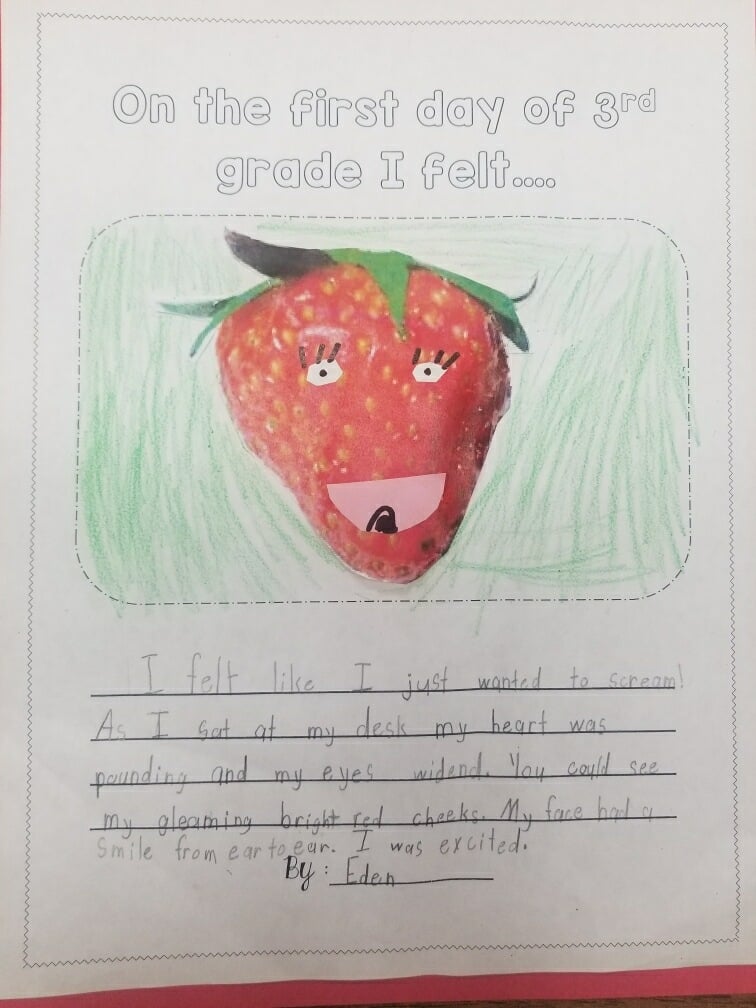 On the first day of 3rd
grade I felt....
I felt like I just wanted to scream!
As I sat at my desk my heart was
pounding and my eyes widend. You could see
my gleaming bright red cheeks. My face had a
smile from ear to ear. I was excited.
By: Eden